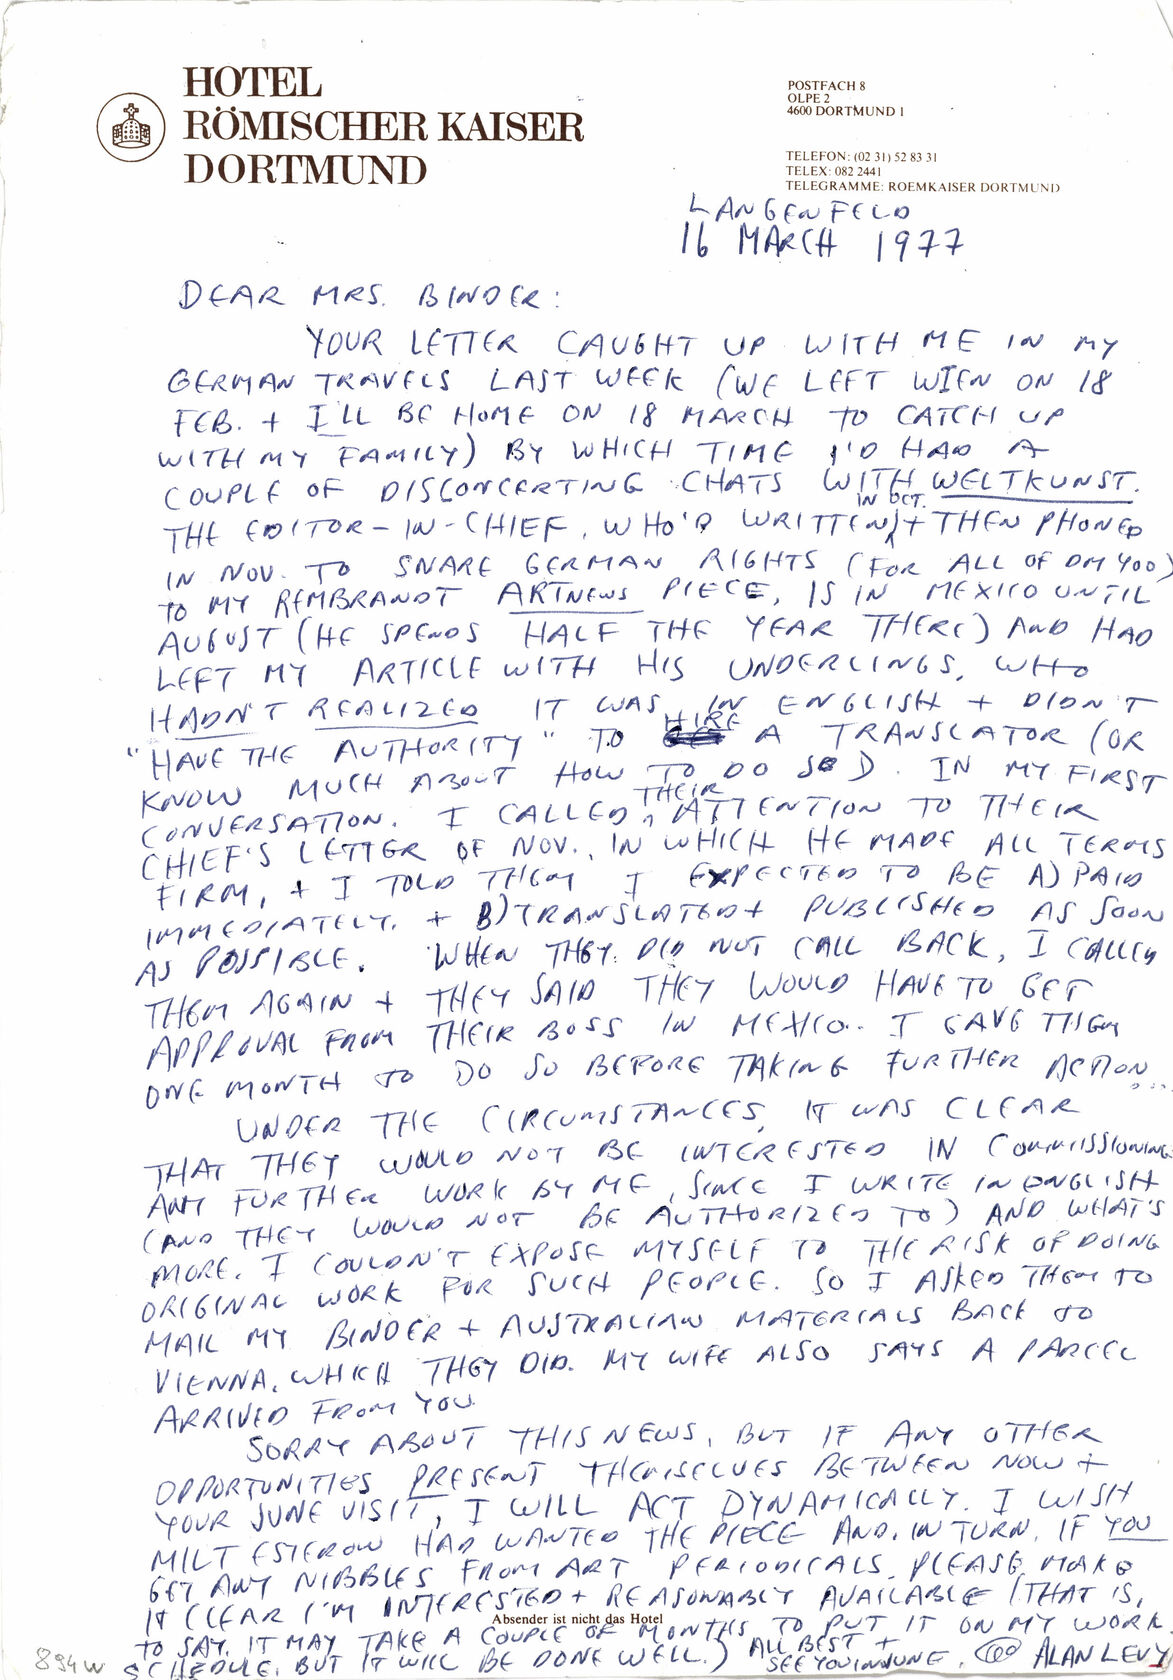 HOTEL
RÖMISCHER KAISER
DORTMUND
POSTFACH 8
OLPE 2
4600 DORTMUND 1
TELEFON: (02 31) 52 83 31
TELEX: 082 2441
TELEGRAMME: ROEMKAISER DORTMUND
LANGENFELD
16 MARCH 1977
DEAR MRS. BINDER:
YOUR LETTER CAUGHT UP WITH ME IN MY
GERMAN TRAVELS LAST WEEK (WE LEFT WIEN ON 18
FEB. + I'LL BE HOME ON 18 MARCH TO CATCH UP
WITH MY FAMILY) BY WHICH TIME I'D HAD A
COUPLE OF DISCONCERTING CHATS WITH WELTKUNST.
THE EDITOR-IN-CHIEF, WHO'D WRITTEN IN OCT. + THEN PHONED
IN NOV. TO SNARE GERMAN RIGHTS (FOR ALL OF DM 400)
TO MY REMBRANDT ARTNEWS PIECE, IS IN MEXICO UNTIL
AUGUST (HE SPENDS HALF THE YEAR THERE) AND HAD
LEFT MY ARTICLE WITH HIS UNDERLINGS, WHO
HADN'T REALIZED IT WAS IN ENGLISH + DIDN'T
"HAVE THE AUTHORITY" TO HIRE A TRANSLATOR (OR
KNOW MUCH ABOUT HOW TO DO SO). IN MY FIRST
CONVERSATION, I CALLED THEIR ATTENTION TO THEIR
CHIEF'S LETTER OF NOV., IN WHICH HE MADE ALL TERMS
FIRM, + I TOLD THEM I EXPECTED TO BE A) PAID
IMMEDIATELY, + B) TRANSLATED + PUBLISHED AS SOON
AS POSSIBLE. WHEN THEY DID NOT CALL BACK, I CALLED
THEM AGAIN + THEY SAID THEY WOULD HAVE TO GET
APPROVAL FROM THEIR BOSS IN MEXICO. I GAVE THEM
ONE MONTH TO DO SO BEFORE TAKING FURTHER ACTION....
UNDER THE CIRCUMSTANCES, IT WAS CLEAR
THAT THEY WOULD NOT BE INTERESTED IN COMMISSIONING
ANY FURTHER WORK BY ME, SINCE I WRITE IN ENGLISH
(AND THEY WOULD NOT BE AUTHORIZED TO) AND WHAT'S
MORE, I COULDN'T EXPOSE MYSELF TO THE RISK OF DOING
ORIGINAL WORK FOR SUCH PEOPLE. SO I ASKED THEM TO
MAIL MY BINDER + AUSTRALIAN MATERIALS BACK TO
VIENNA, WHICH THEY DID. MY WIFE ALSO SAYS A PARCEL
ARRIVED FROM YOU.
SORRY ABOUT THIS NEWS, BUT IF ANY OTHER
OPPORTUNITIES PRESENT THEMSELVES BETWEEN NOW +
YOUR JUNE VISIT, I WILL ACT DYNAMICALLY. I WISH
MILT ESTEROW HAD WANTED THE PIECE AND, IN TURN, IF YOU
GET ANY NIBBLES FROM ART PERIODICALS, PLEASE MAKE
IT CLEAR I'M INTERESTED + REASONABLY AVAILABLE (THAT IS,
Absender ist nicht das Hotel
TO SAY, IT MAY TAKE A COUPLE OF MONTHS TO PUT IT ON MY WORK
SCHEDULE, BUT IT WILL BE DONE WELL.) ALL BEST +
SEE YOU IN JUNE, ALAN LEVY
894w